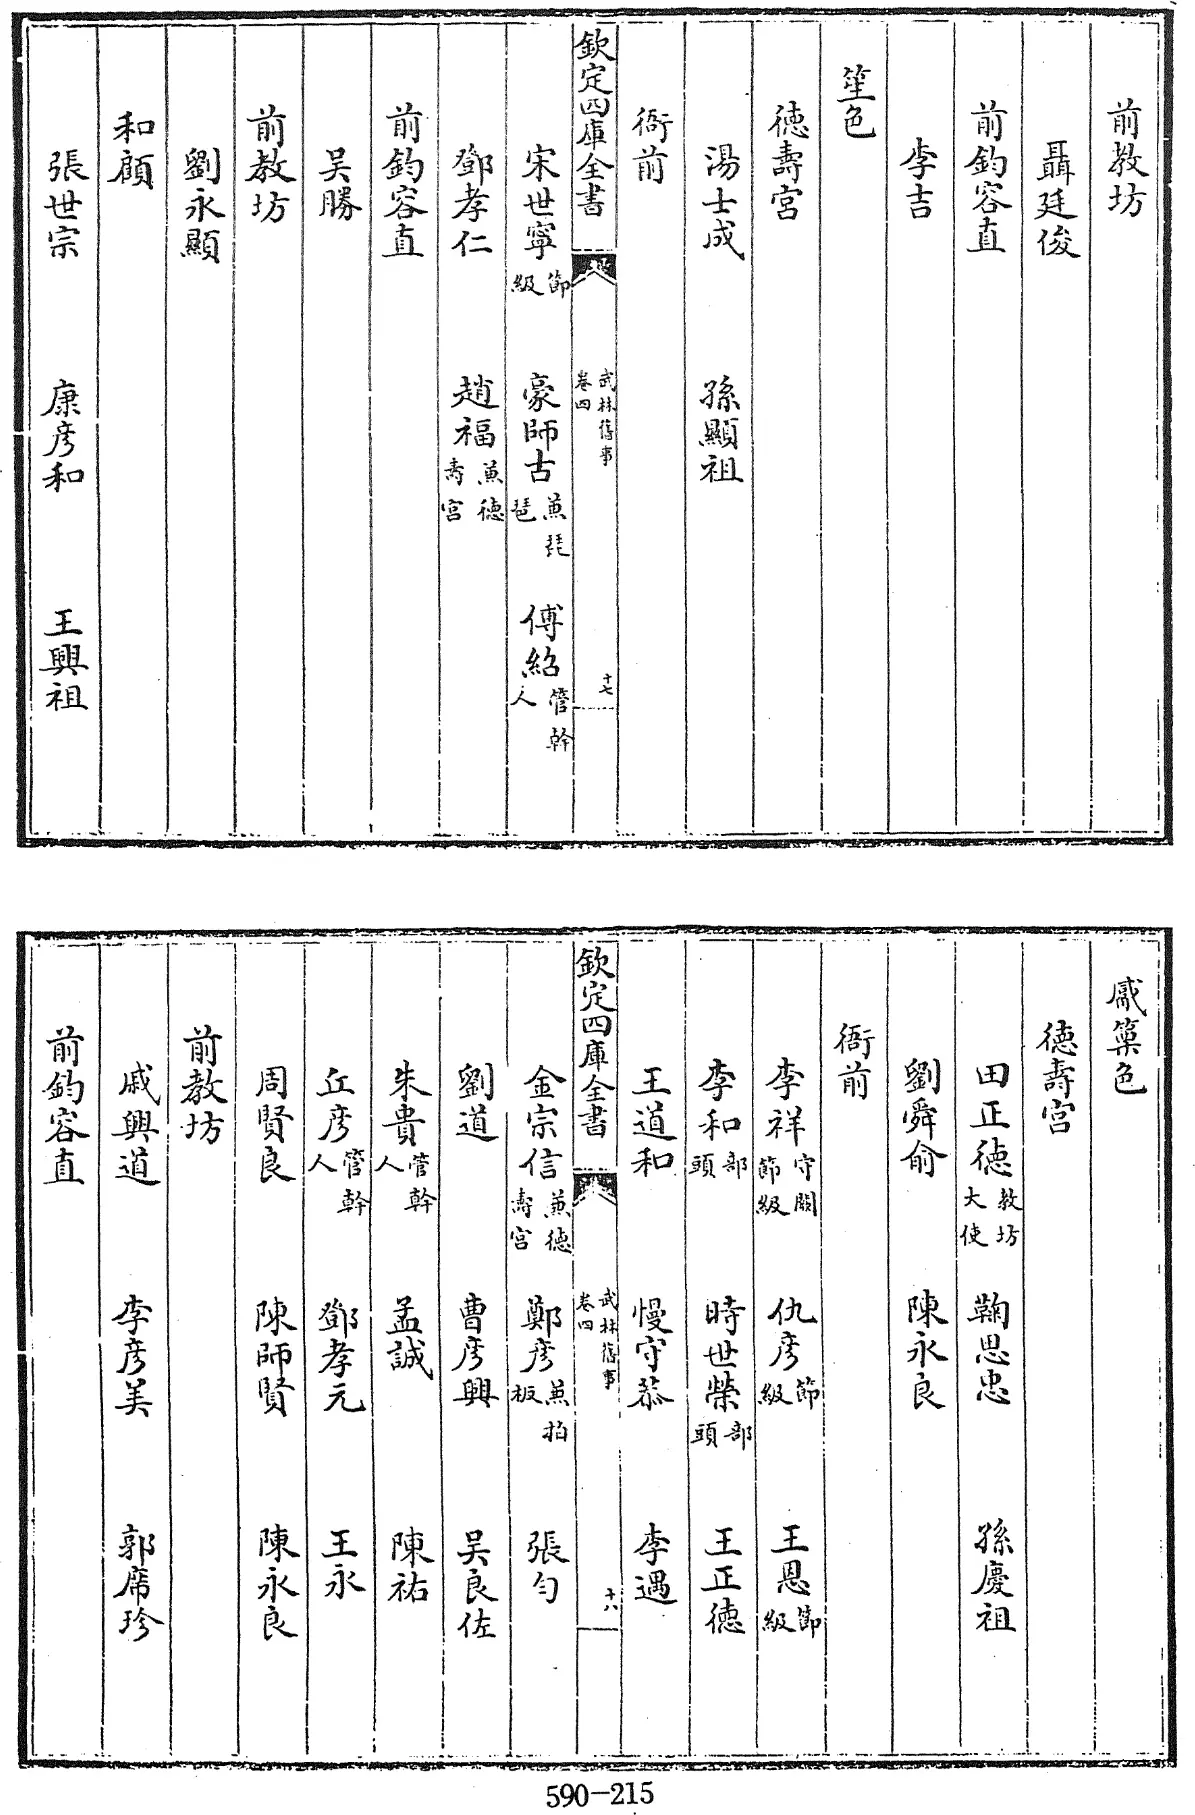 前教坊
聶廷俊
前鈞容直
李吉
笙色
徳壽宫
湯士成 孫顯祖
衙前
欽定四庫全書 武林舊事 卷四 十七
宋世寧節級 豪師古兼琵琶 傅紹管幹人
鄧孝仁 趙福兼徳壽宫
前鈞容直
吴勝
前教坊
劉永顯
和顧
張世宗 康彦和 王興祖
觱篥色
徳壽宫
田正徳教坊大使 鞠思忠 孫慶祖
劉舜俞 陳永良
衙前
李祥守闕節級 仇彦節級 王恩節級
李和部頭 時世榮部頭 王正徳
王道和 慢守恭 李遇
欽定四庫全書 武林舊事 卷四 十八
金宗信兼徳壽宫 鄭彦兼拍板 張匀
劉道 曹彦興 吴良佐
朱貴管幹人 孟誠 陳祐
丘彦管幹人 鄧孝元 王永
周賢良 陳師賢 陳永良
前教坊
戚興道 李彦美 郭席珍
前鈞容直
590-215